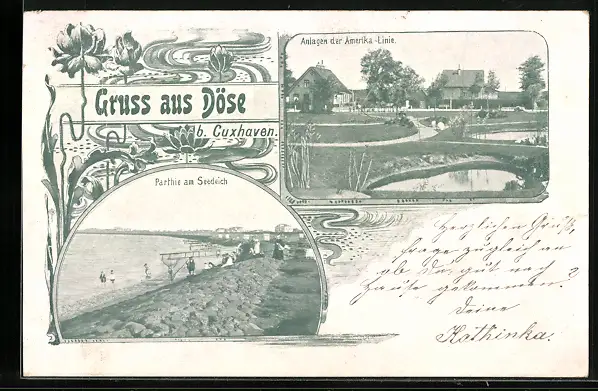 Gruss aus Döse
b. Cuxhaven.
Anlagen der Amerika-Linie.
Parthie am Seedeich
Herzlichen Gruß,
frage zugleich an
ob du gut nach
Hause gekommen?
Deine
Kathinka.